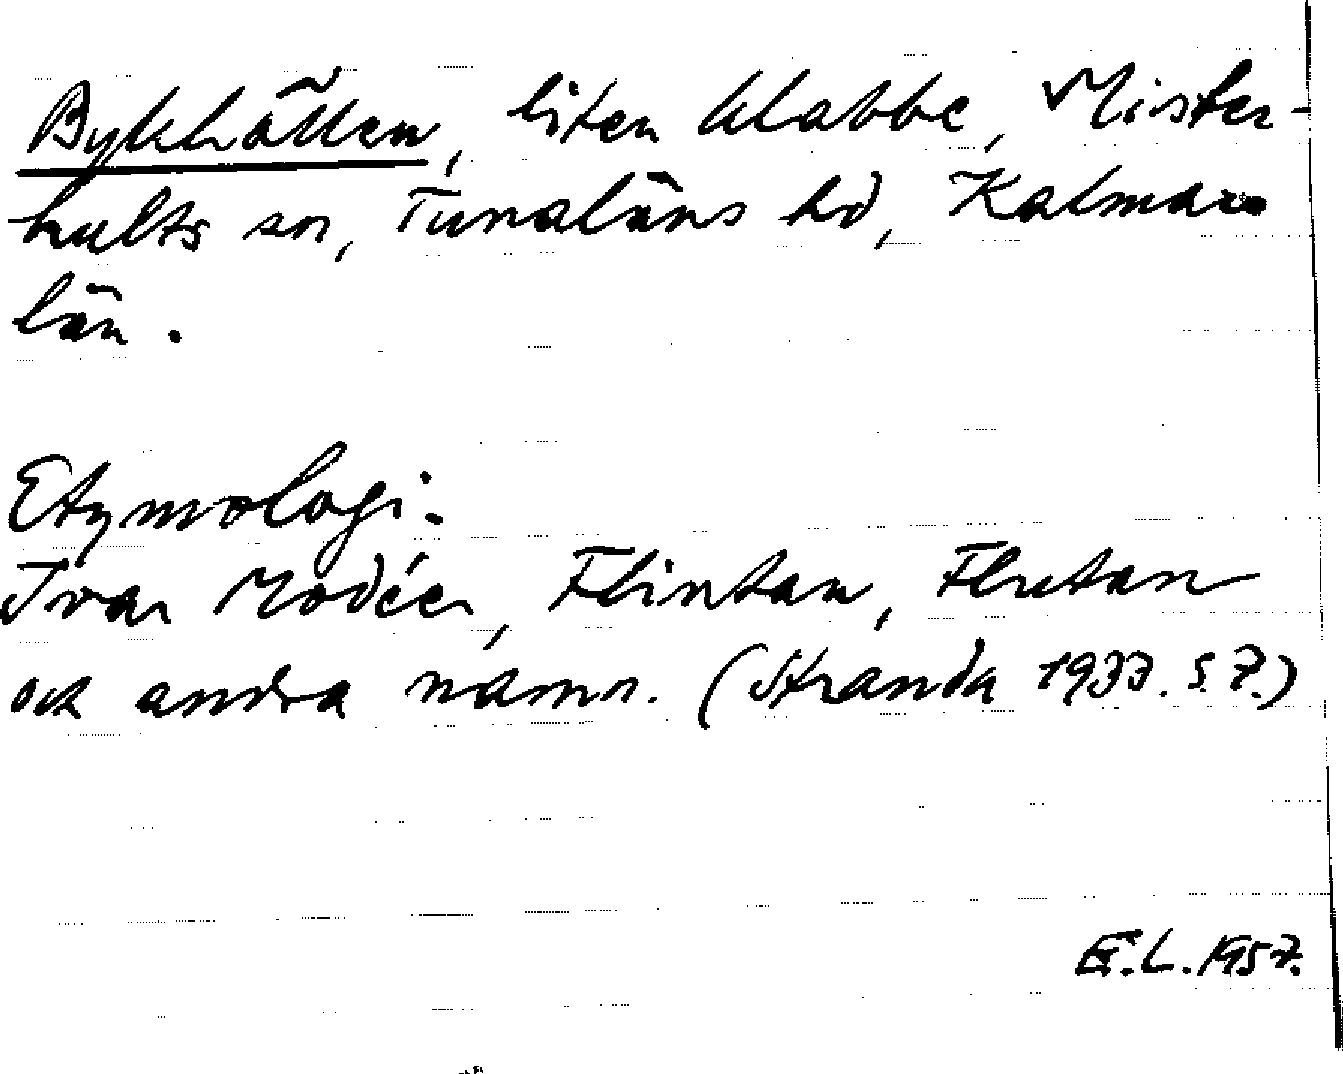 Bykhällen, liten klabbe, Mister-
hults sn, Tunaläns hd, Kalmar
län.
Etymologi:
Ivar Modéer, Flintan, Flutan
och andra namn. (Stranda 1937. s. 7.)
E.L. 1957.